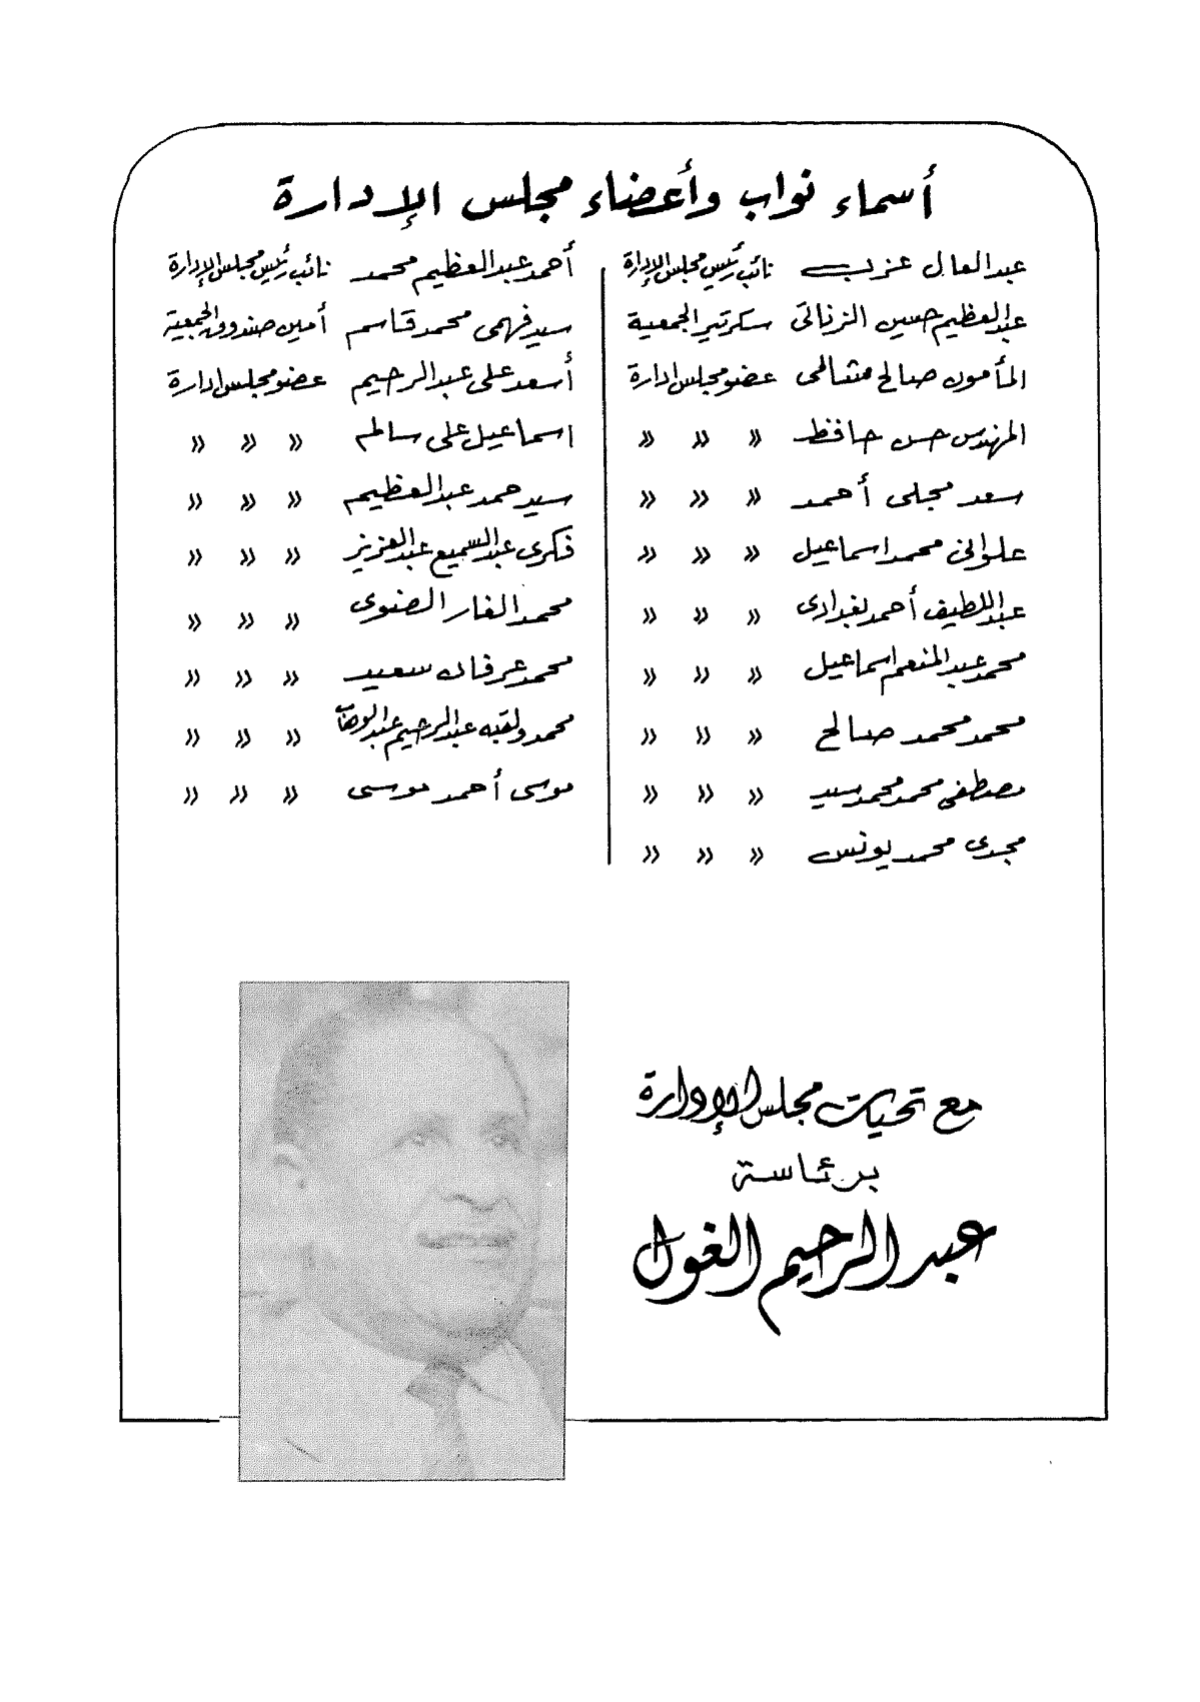 أسماء نواب وأعضاء مجلس الإدارة
عبدالعال عزب نائب رئيس مجلس الإدارة
عبدالعظيم حسين الزناتى سكرتير الجمعية
المأمون صالح مشالى عضو مجلس ادارة
المهندس حسن حافظ » » »
سعد مجلى أحمد » » »
علوانى محمد اسماعيل » » »
عبداللطيف أحمد بغدادى » » »
محمد عبدالمنعم اسماعيل » » »
محمد محمد صالح » » »
مصطفى محمد محمد سيد » » »
مجدى محمد يونس » » »
أحمد عبدالعظيم محمد نائب رئيس مجلس الإدارة
سيد فهمى محمد قاسم أمين صندوق الجمعية
أسعد على عبدالرحيم عضو مجلس ادارة
اسماعيل على سالم » » »
سيد حمد عبدالعظيم » » »
فكرى عبدالسميع عبدالعزيز » » »
محمد الفار الضوى » » »
محمد عرفان سعيد » » »
محمد ولقبه عبدالرحيم عبدالوهاب » » »
موسى أحمد موسى » » »
مع تحيات مجلس الإدارة
برئاسة
عبد الرحيم الغول